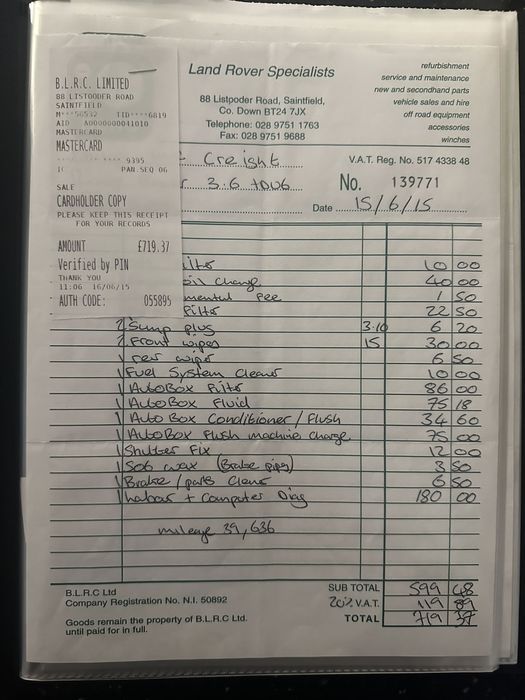 B.L.R.C. LIMITED
88 LISTOODER ROAD
SAINTFIELD
M***56532 TID****6819
AID A0000000041010
MASTERCARD
MASTERCARD
**** **** **** 9395
IC PAN.SEQ 06
SALE
CARDHOLDER COPY
PLEASE KEEP THIS RECEIPT
FOR YOUR RECORDS
AMOUNT £719.37
Verified by PIN
THANK YOU
11:06 16/06/15
AUTH CODE: 055895
Land Rover Specialists
88 Listooder Road, Saintfield,
Co. Down BT24 7JX
Telephone: 028 9751 1763
Fax: 028 9751 9688
refurbishment
service and maintenance
new and secondhand parts
vehicle sales and hire
off road equipment
accessories
winches
V.A.T. Reg. No. 517 4338 48
Creight
3.6 TDV6
No. 139771
Date 15/6/15
ilter 10 00
oil change 40 00
mental Fee 1 50
Filter 22 50
2 Sump plug 3.10 6 20
2 Front wipes 15 30 00
1 rear wipe 6 50
1 Fuel System cleaner 10 00
1 AutoBox Filter 86 00
1 AutoBox Fluid 75 18
1 Auto Box Conditioner / Flush 34 60
1 AutoBox Flush machine charge 75 00
1 Shutter Fix 12 00
1 wax (Brake pipes) 3 50
1 Brake / parts Cleaner 6 50
1 Labour + Computer Diag 180 00
mileage 39,636
B.L.R.C Ltd
Company Registration No. N.I. 50892
Goods remain the property of B.L.R.C Ltd.
until paid for in full.
SUB TOTAL 599 48
20% V.A.T. 119 89
TOTAL 719 37